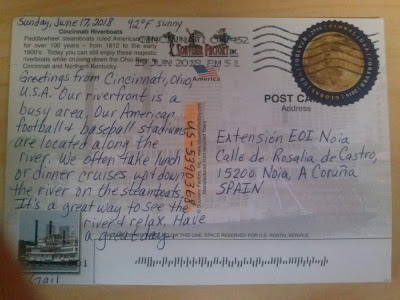 Sunday, June 17, 2018 92°F sunny
Cincinnati Riverboats
Paddlewheel steamboats ruled American
for over 100 years - from 1812 to the early
1900's. Today you can still enjoy these majestic
riverboats while cruising down the Ohio
Cincinnati and Northern Kentucky.
Greetings from Cincinnati, Ohio,
U.S.A. Our riverfront is a
busy area. Our American
football & baseball stadiums
are located along the
river. We often take lunch
or dinner cruises up & down
the river on the steamboats.
It's a great way to see the
river & relax. Have
a great day.
Gail
SOUVENIR FACTORY INC.
JUN 2018 PM 5 L
America
US-5390368
POST CA
Address
Extensión EOI Noia
Calle de Rosalia de Castro,
15200 Noia, A Coruña
SPAIN
LOW LINE. SPACE RESERVED FOR U.S. POSTAL SERVICE